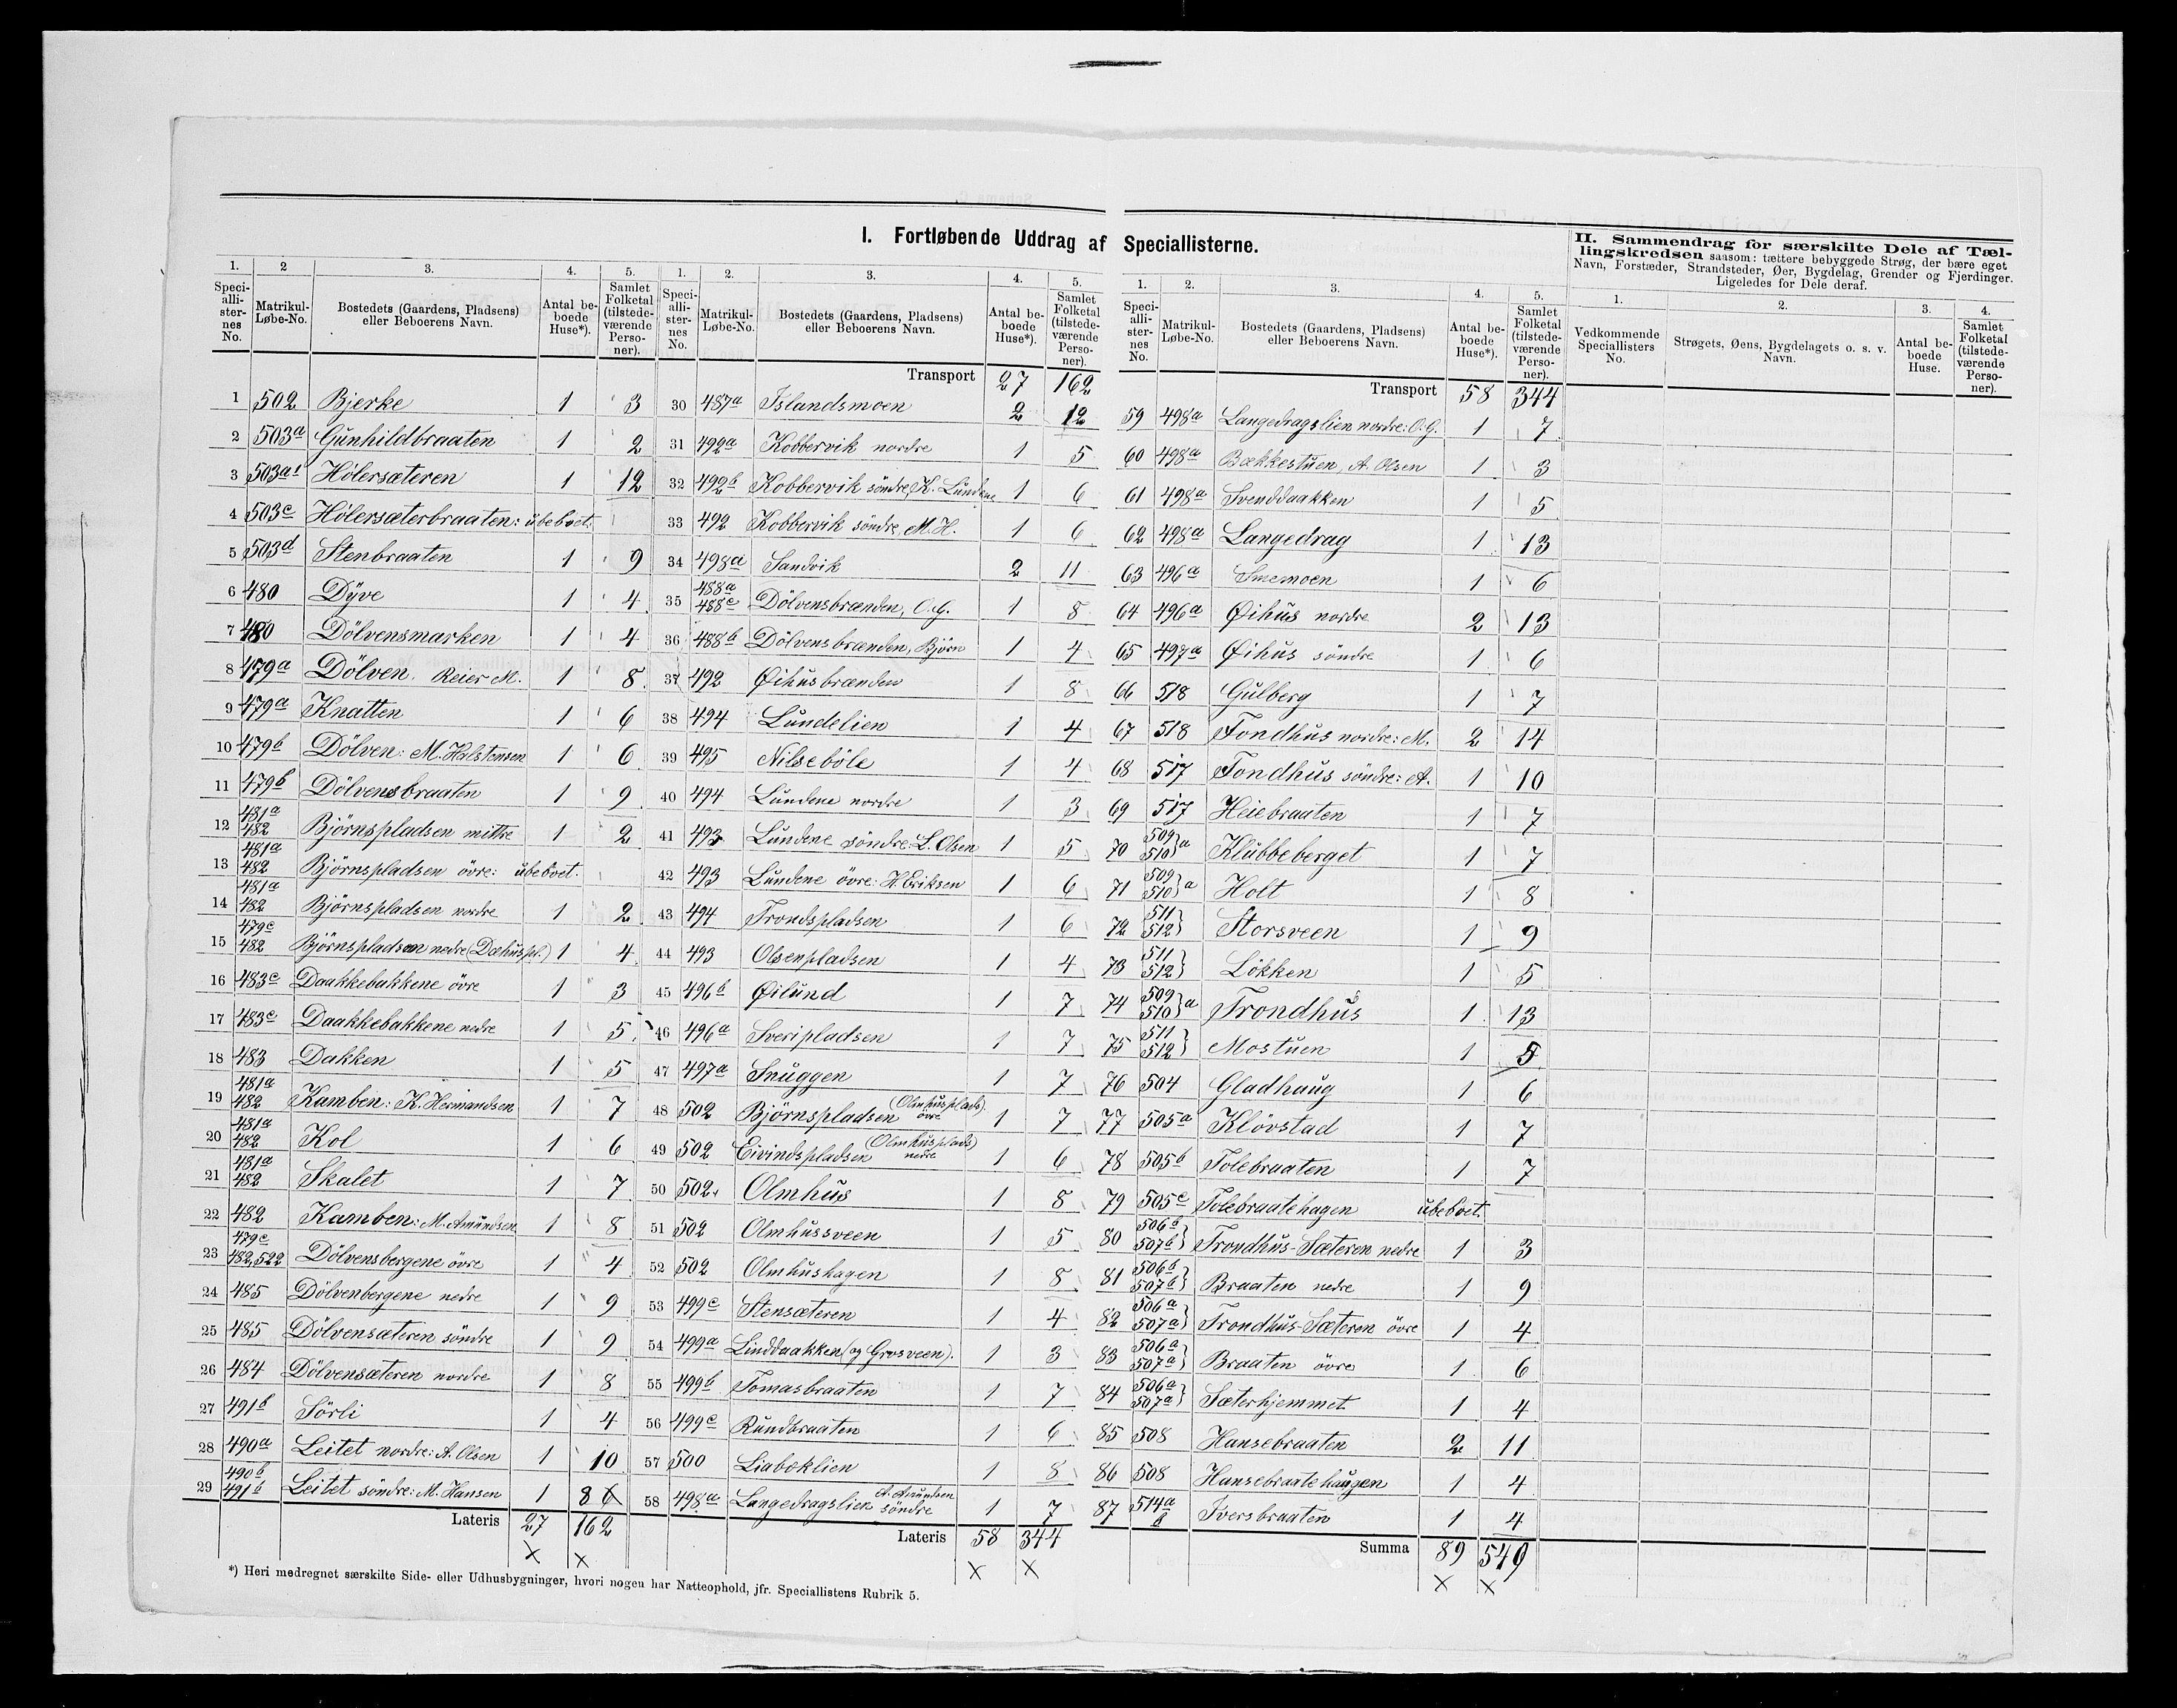 I. Fortløbende Uddrag af Speciallisterne.
II. Sammendrag for særskilte Dele af Tællingskredsen saasom: tættere bebyggede Strøg, der bære eget Navn, Forstæder, Strandsteder, Øer, Bygdelag, Grender og Fjerdinger. Ligeledes for Dele deraf.
1. 2 3. 4. 5.
Speciallisternes No. Matrikul-Løbe-No. Bostedets (Gaardens, Pladsens) eller Beboerens Navn. Antal beboede Huse*). Samlet Folketal (tilstedeværende Personer).
1 502 Bjerke 1 3
2 503a Gunhildbraaten 1 2
3 503a1 Hölersæteren 1 12
4 503c Hölersæterbraaten: ubeboet.
5 503d Stenbraaten 1 9
6 480 Dyve 1 4
7 480 Dölvensmarken 1 4
8 479a Dölven. Reier M. 1 8
9 479a Knatten 1 6
10 479b Dölven: M. Halstensen 1 6
11 479b Dölvensbraaten 1 9
12 481a 482 Björnspladsen mittre 1 2
13 481a 482 Björnspladsen övre: ubeboet.
14 481a 482 Björnspladsen nordre 1 2
15 479c 482 Björnspladsen nedre (Dæhuspl.) 1 4
16 483c Daakkebakkene övre 1 3
17 483c Daakkebakkene nedre 1 5
18 483 Dakken 1 5
19 481a 482 Kamben: K. Hermandsen 1 7
20 481a 482 Kol 1 6
21 481a 482 Skalet 1 7
22 482 Kamben: M. Amundsen 1 8
23 479c 482,522 Dölvensbergene övre 1 4
24 485 Dölvenbergene nedre 1 9
25 485 Dölvensæteren söndre 1 9
26 484 Dölvensæteren nordre 1 8
27 491b Sörli 1 4
28 490a Leitet nordre: A. Olsen 1 10
29 490b 491b Leitet söndre: M. Hansen 1 8
Lateris 27 162
1. 2. 3. 4. 5.
Speciallisternes No. Matrikul-Løbe-No. Bostedets (Gaardens, Pladsens) eller Beboerens Navn. Antal beboede Huse*). Samlet Folketal (tilstedeværende Personer).
Transport 27 162
30 487a Islandsmoen 2 12
31 492a Kobbervik nordre 1 5
32 492b Kobbervik söndre, K. Lundene 1 6
33 492 Kobbervik söndre, M. H. 1 6
34 498a Sandvik 2 11
35 488a 488c Dölvensbrænden, O. G. 1 8
36 488b Dölvensbrænden, Björn 1 4
37 492 Øihusbrænden 1 8
38 494 Lundelien 1 4
39 495 Nilseböle 1 4
40 494 Lundene nordre 1 3
41 493 Lundene söndre: L. Olsen 1 5
42 493 Lundene övre: H. Eriksen 1 6
43 494 Trondspladsen 1 6
44 493 Olsenpladsen 1 4
45 496b Øilund 1 7
46 496a Sveripladsen 1 7
47 497a Snuggen 1 7
48 502 Björnspladsen (Olmhusplads) övre 1 7
49 502 Eivindspladsen (Olmhusplads) nedre 1 6
50 502 Olmhus 1 8
51 502 Olmhussveen 1 5
52 502 Olmhushagen 1 8
53 499c Stensæteren 1 4
54 499a Linddaakken (og Grosveen). 1 3
55 499b Tomasbraaten 1 7
56 499c Rundbraaten 1 6
57 500 Liaboklien 1 8
58 498a Langedragslien A. Amundsen söndre 1 7
Lateris 58 344
1. 2. 3. 4. 5.
Speciallisternes No. Matrikul-Løbe-No. Bostedets (Gaardens, Pladsens) eller Beboerens Navn. Antal beboede Huse*). Samlet Folketal (tilstedeværende Personer).
Transport 58 344
59 498a Langedragslien nordre: O. G. 1 7
60 498a Bækkestuen, A. Olsen 1 3
61 498a Svenddaakken 1 5
62 498a Langedrag 1 13
63 496a Smemoen 1 6
64 496a Øihus nordre 2 13
65 497a Øihus söndre 1 6
66 518 Gulberg 1 7
67 518 Tondhus nordre: M. 2 14
68 517 Tondhus söndre: A. 1 10
69 517 Heiebraaten 1 7
70 509 510 a Klubbeberget 1 7
71 509 510 a Holt 1 8
72 511 512 Storsveen 1 9
73 511 512 Lökken 1 5
74 509 510 a Trondhus 1 13
75 511 512 Mostuen 1 5
76 504 Gladhaug 1 6
77 505a Klövstad 1 7
78 505b Tolebraaten 1 7
79 505c Tolebraatehagen ubeboet.
80 506b 507b Trondhus-Sæteren nedre 1 3
81 506b 507b Braaten nedre 1 9
82 506a 507a Trondhus-Sæteren övre 1 4
83 506a 507a Braaten övre 1 6
84 506a 507a Sæterhjemmet 1 4
85 508 Hansebraaten 2 11
86 508 Hansebraatehaugen 1 4
87 514a Iversbraaten 1 4
Summa 89 549
1. 2. 3. 4.
Vedkommende Speciallisters No. Strøgets, Øens, Bygdelagets o. s. v. Navn. Antal beboede Huse. Samlet Folketal (tilstedeværende Personer).
*) Heri medregnet særskilte Side- eller Udhusbygninger, hvori nogen har Natteophold, jfr. Speciallistens Rubrik 5.